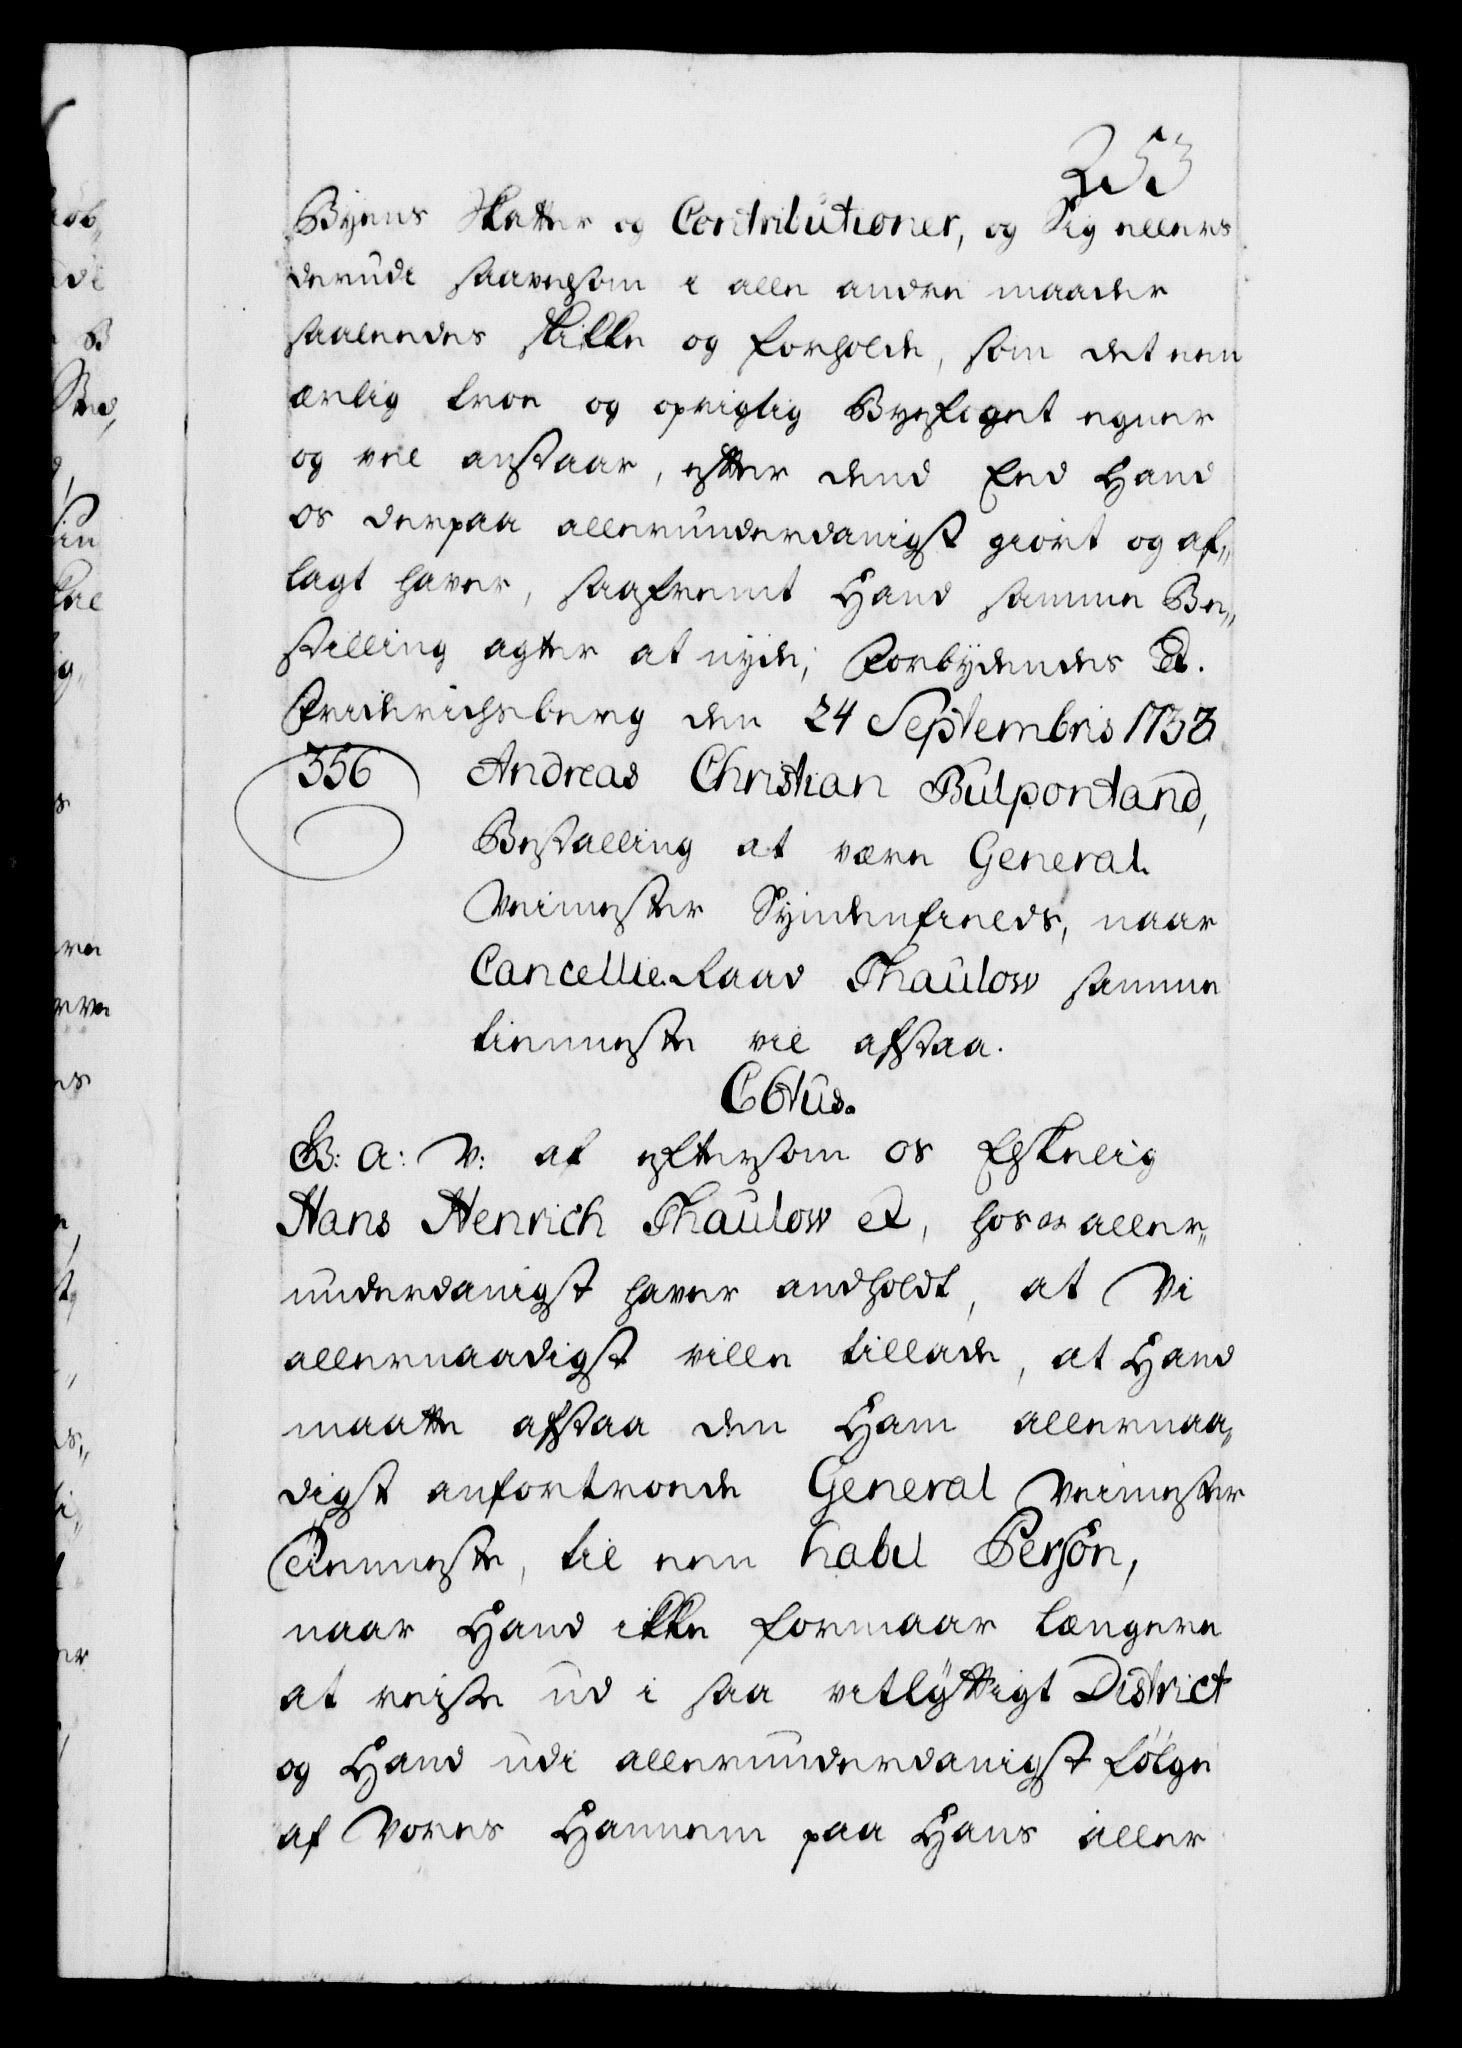 253
Byens Skatter og Contributioner, og Sig ellers
derudi saavelsom i alle andre maader
saaledes skikke og forholde, som det een
ærlig troe og oprigtig Byefoget egner
og vel anstaar, efter dend Eed Hand
os derpaa allerunderdanigst giort og af„
lagt haver, saafremt Hand samme Be„
stilling agter at nyde; Forbydendes Et.
Friderichsberg den 24 Septembris 1733
356 Andreas Christian Bulpontand,
Bestalling at være General.
Veimester Syndenfields, naar
Cancellie Raad Thaulow samme
tienneste vil afstaa.
C6tus.
G: A: V: at eftersom os Elskelig
Hans Henrich Thaulow et, hos os aller„
underdanigst haver andholdt, at Vi
allernaadigst ville tillade, at Hand
maatte afstaa den Ham allernaa„
digst anfortroede General Veimester
Tienneste, til een habil Person,
naar Hand ikke formaar længere
at reise ud i saa vitlyftigt District
og Hand udi allerunderdanigst følge
af Vores Hannem paa Hans aller